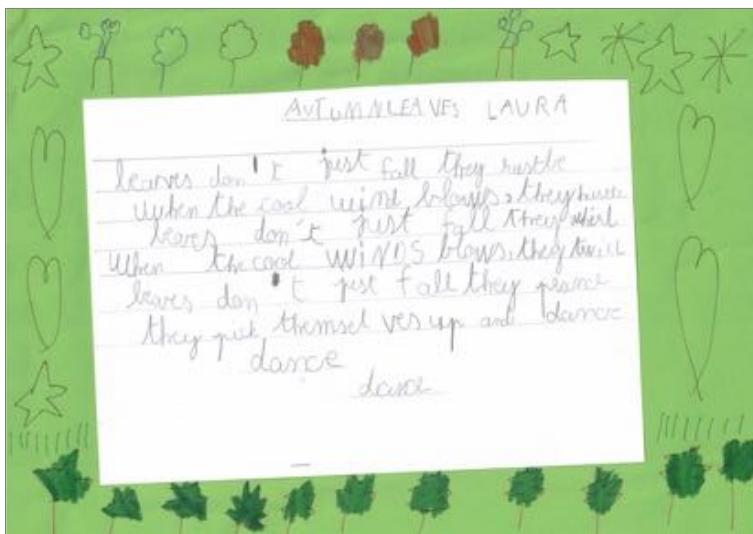 AUTUMN LEAVES LAURA
leaves don't just fall they rustle
when the cool wind blows, they hustle
leaves don't just fall they whirl
When the cool WINDS blows, they twirl
leaves don't just fall they prance
they pick themselves up and dance
dance
dance